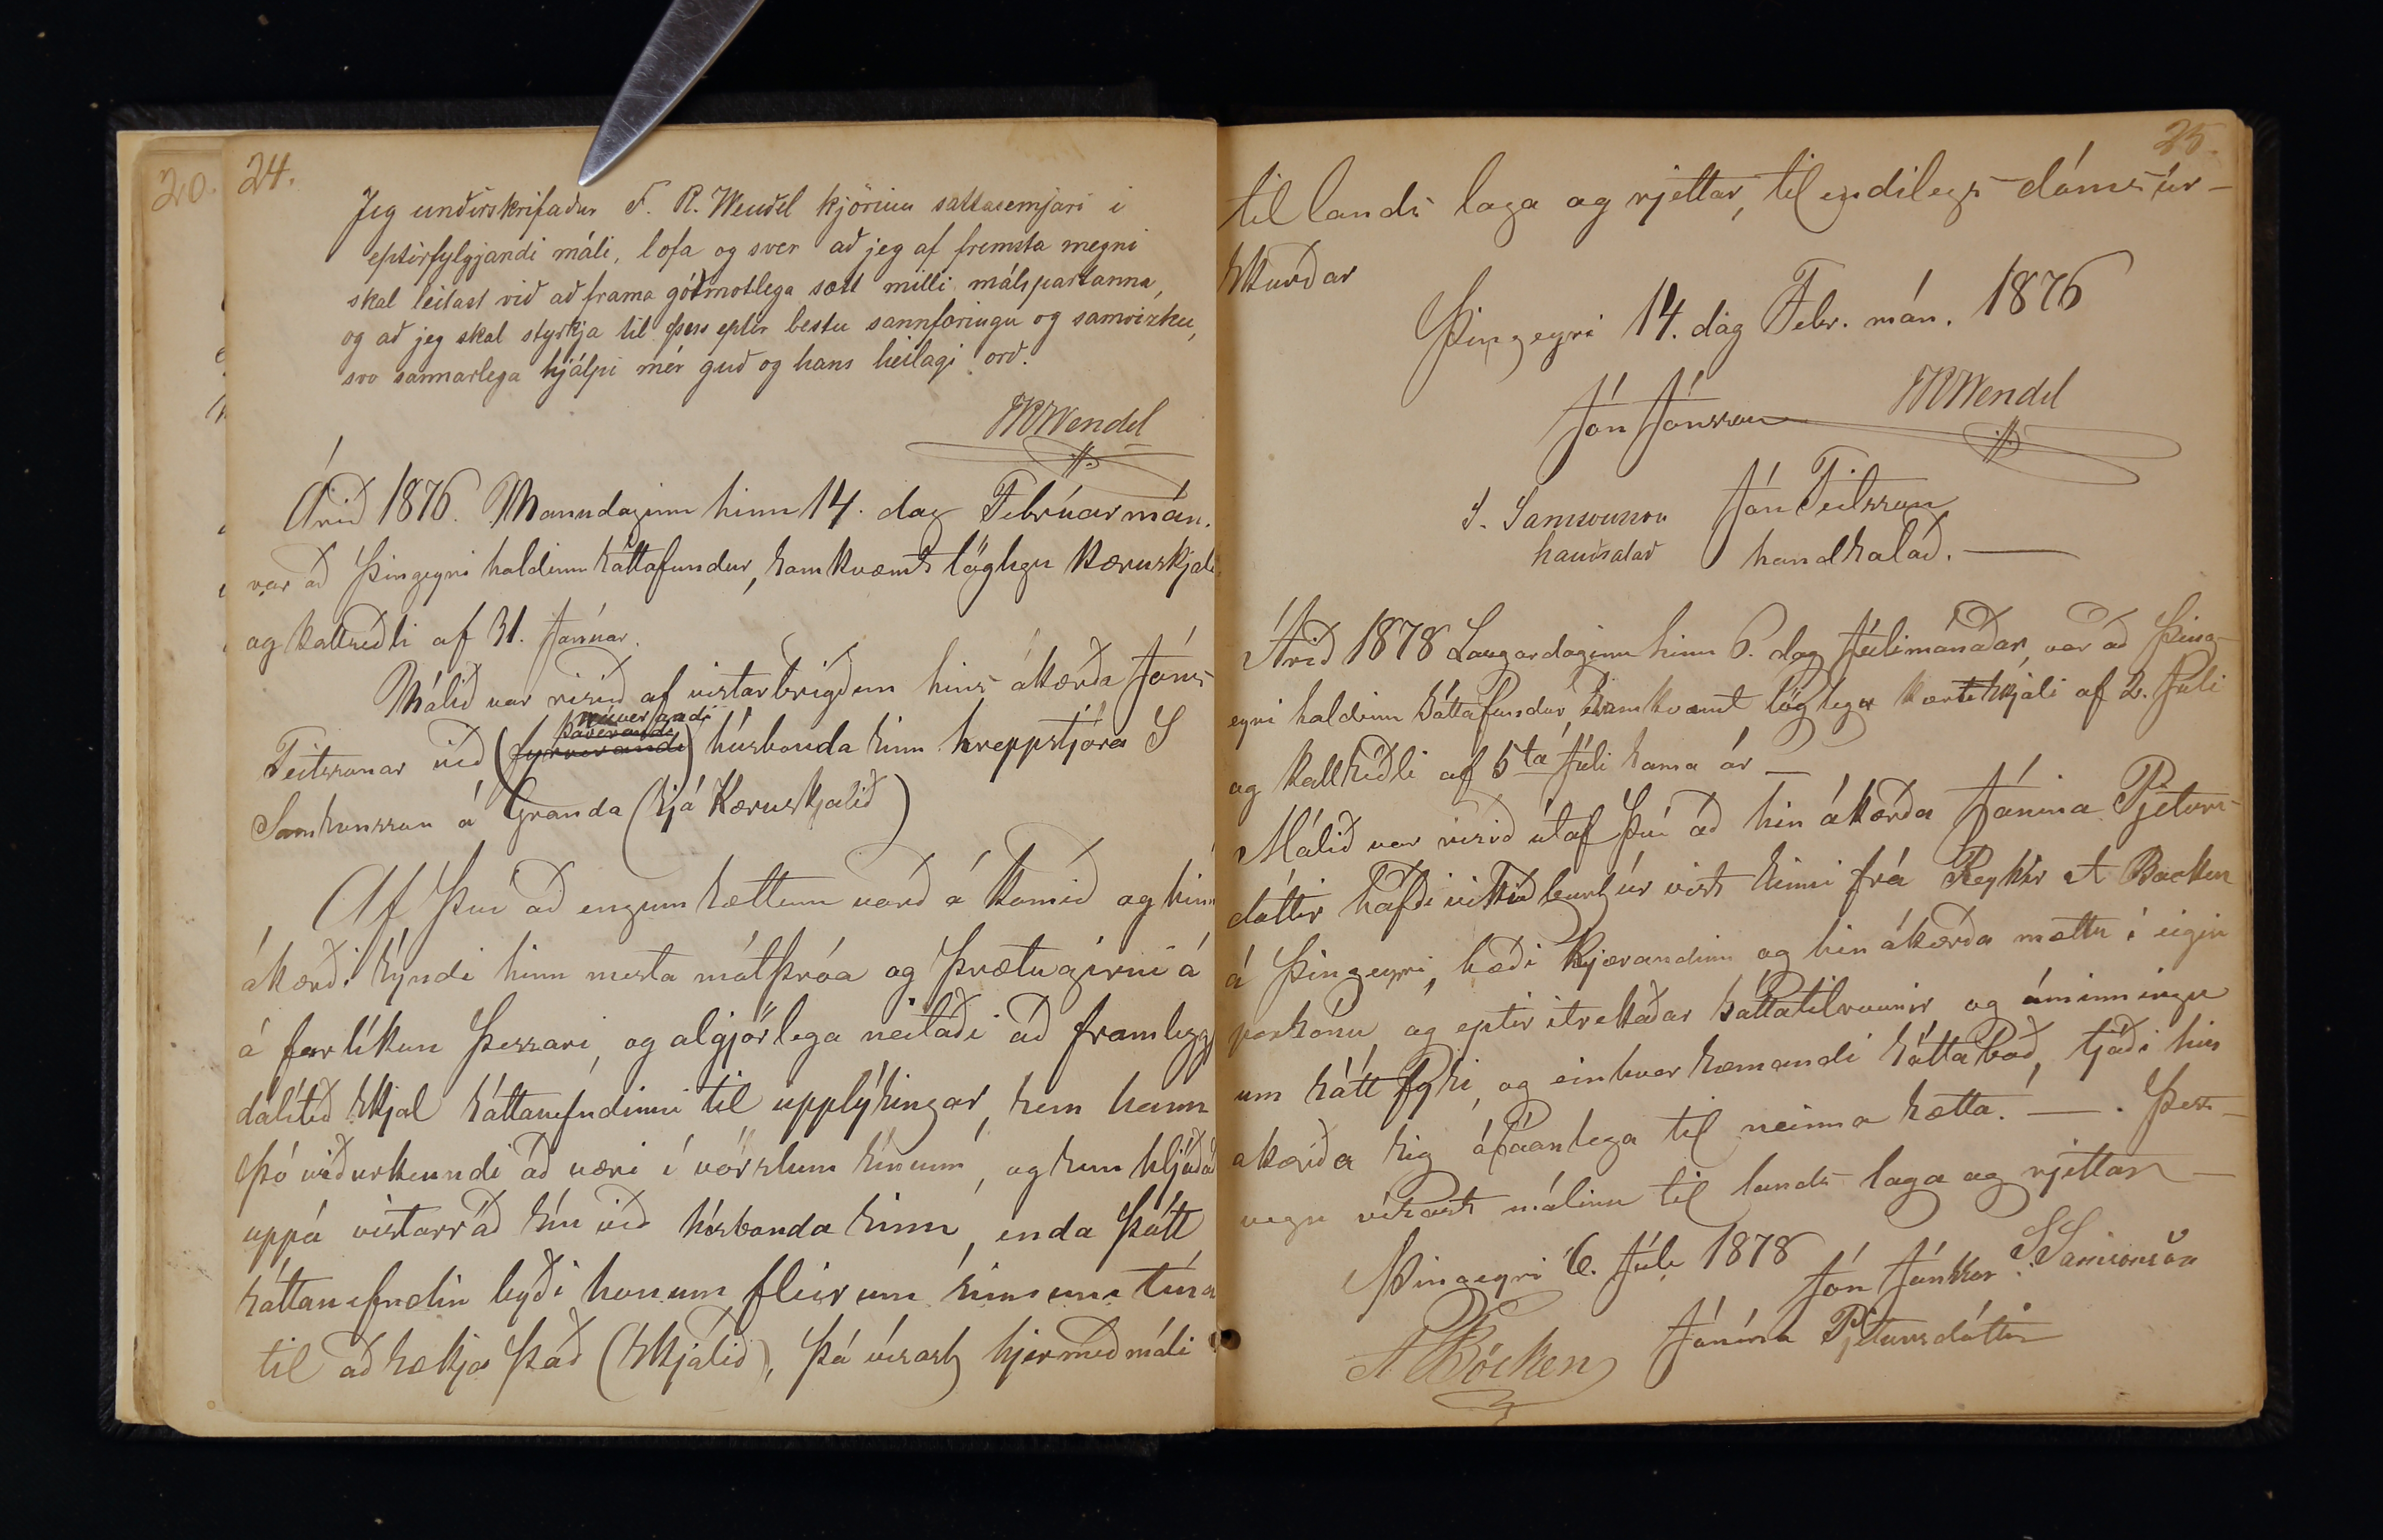 20.
24.
Jeg undirskrifaður F. R. Wendel kjörinn sáttasemjari i
eptirfylgjandi máli, lofa og sver að jeg af fremsta megni
skal leitast við að frama góðmotlega sætt milli málspartanna,
og að jeg skal styrkja til þess eptir bestu sannfæringu og samvizku,
svo sannarlega hjálpi mér guð og hans heilagi orð.
FRWendel
Árið 1876. Mánudaginn hinn 14. dag Febrúarmán.
var að Þingeyri haldinn sáttafundur, samkvæmt löglegu kæruskjali
og kallseðli af 31. Janúar.
Málið var risið af vistarbrigðum hins ákærða Jóns
núverandi
þáverandi
Teitssonar við (fyrrverandi) húsbonda sinn hreppstjóra S
Samsonsson á Granda (sjá Kæruskjalið)
Af því að engum sættum varð á komið og hinn
ákærði sýndi hinn mesta mótþróa og þrætugirni á
á forlíkun þessari, og algjörlega neitaði að framleggja
dálítið skjal sáttanefndinni til upplýsingar, sem hann
þó viðurkenndi að væri í vörzlum sínum, og sem hljóðaði
uppá vistarráð sín við húsbonda sinn, enda þótt
sáttanefndin byði honum fleirum sinnum tíma
til að sækja það (skjalið), þá vísast hjermeð máli
25.
til lands laga og rjettar, til endilegs dóms úr-
skurðar
Þingeyri 14. dag Febr. mán. 1876
Jón Jónsson FRWendel
S. Samsonson Jón Teitsson
handsalað handsalað.
Árið 1878 Laugardaginn hinn 6. dag Júlimánaðar, var að Þing-
eyri haldinn sáttafundur, samkvæmt löglega kæruskjali af 2. Júli
og kallseðli af 5ta Júli sama ár
Málið var risið útaf því að hin ákærða Jónina Pjeturs-
dóttir hafði vikið burt úr vist sinni frá A Backen
á Þingeyri, bæði kjærandinn og hin ákærða mættu í eigin
persónu, og eptir itrekaðar sáttatilraunir og áminningu
um sátt fýsi, og einhver sæmandi sáttaboð, tjáði hin
akærða sig ófáanlega til neinna sætta. — . Þess-
vegna vísast málinu til lands laga og rjettar —
Þingeyri 6. Júli 1878
Jón Jónsson S. Samsonson
A Böcken Jónína Pjetursdóttir